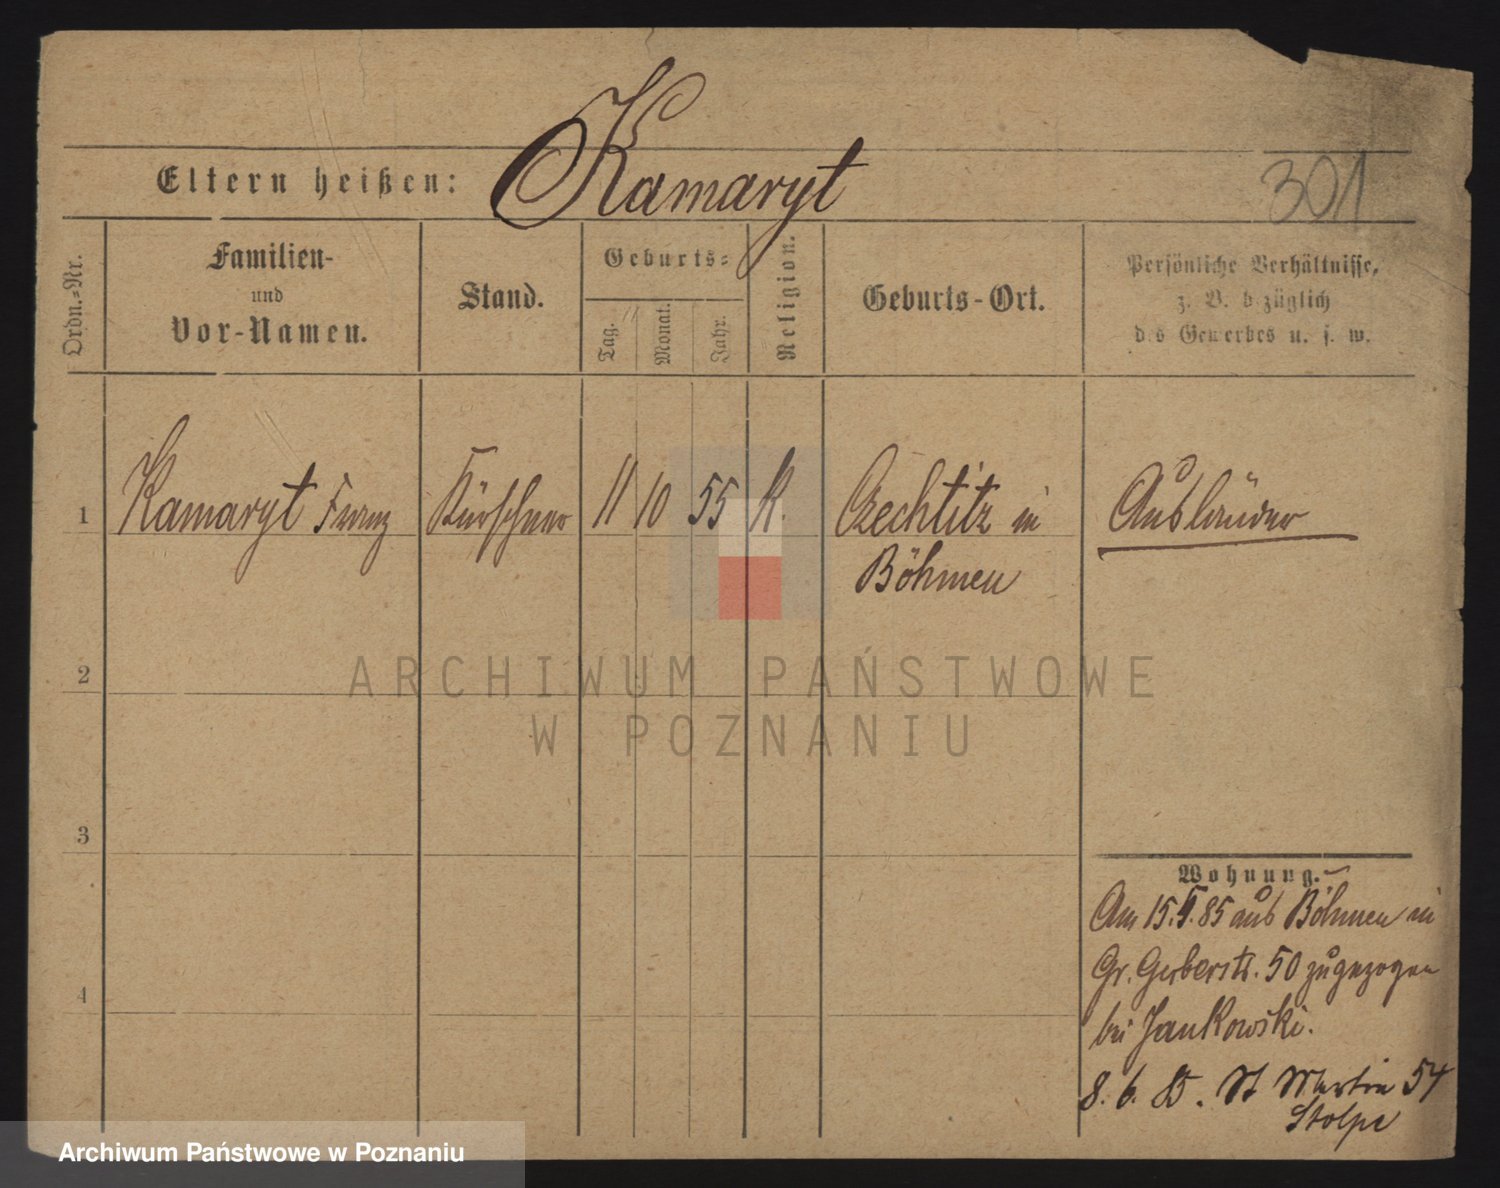 Eltern heißen: Kamaryt
301
Ordn.-Nr.
Familien-
und
Vor-Namen.
Stand.
Geburts-
Tag.
Monat.
Jahr.
Religion.
Geburts-Ort.
Persönliche Verhältnisse,
z. B. bezüglich
des Gewerbes u. s. w.
1 Kamaryt Franz Kürschner 11 10 55 K. Czechtitz in Ausländer
Böhmen
2
ARCHIWUM PAŃSTWOWE
W POZNANIU
3
Wohnung.
Am 15.5.85 aus Böhmen in
Gr. Gerberstr. 50 zugezogen
bei Jankowski.
4
8. 6. 85. St Martin 54
Stolpe
Archiwum Państwowe w Poznaniu